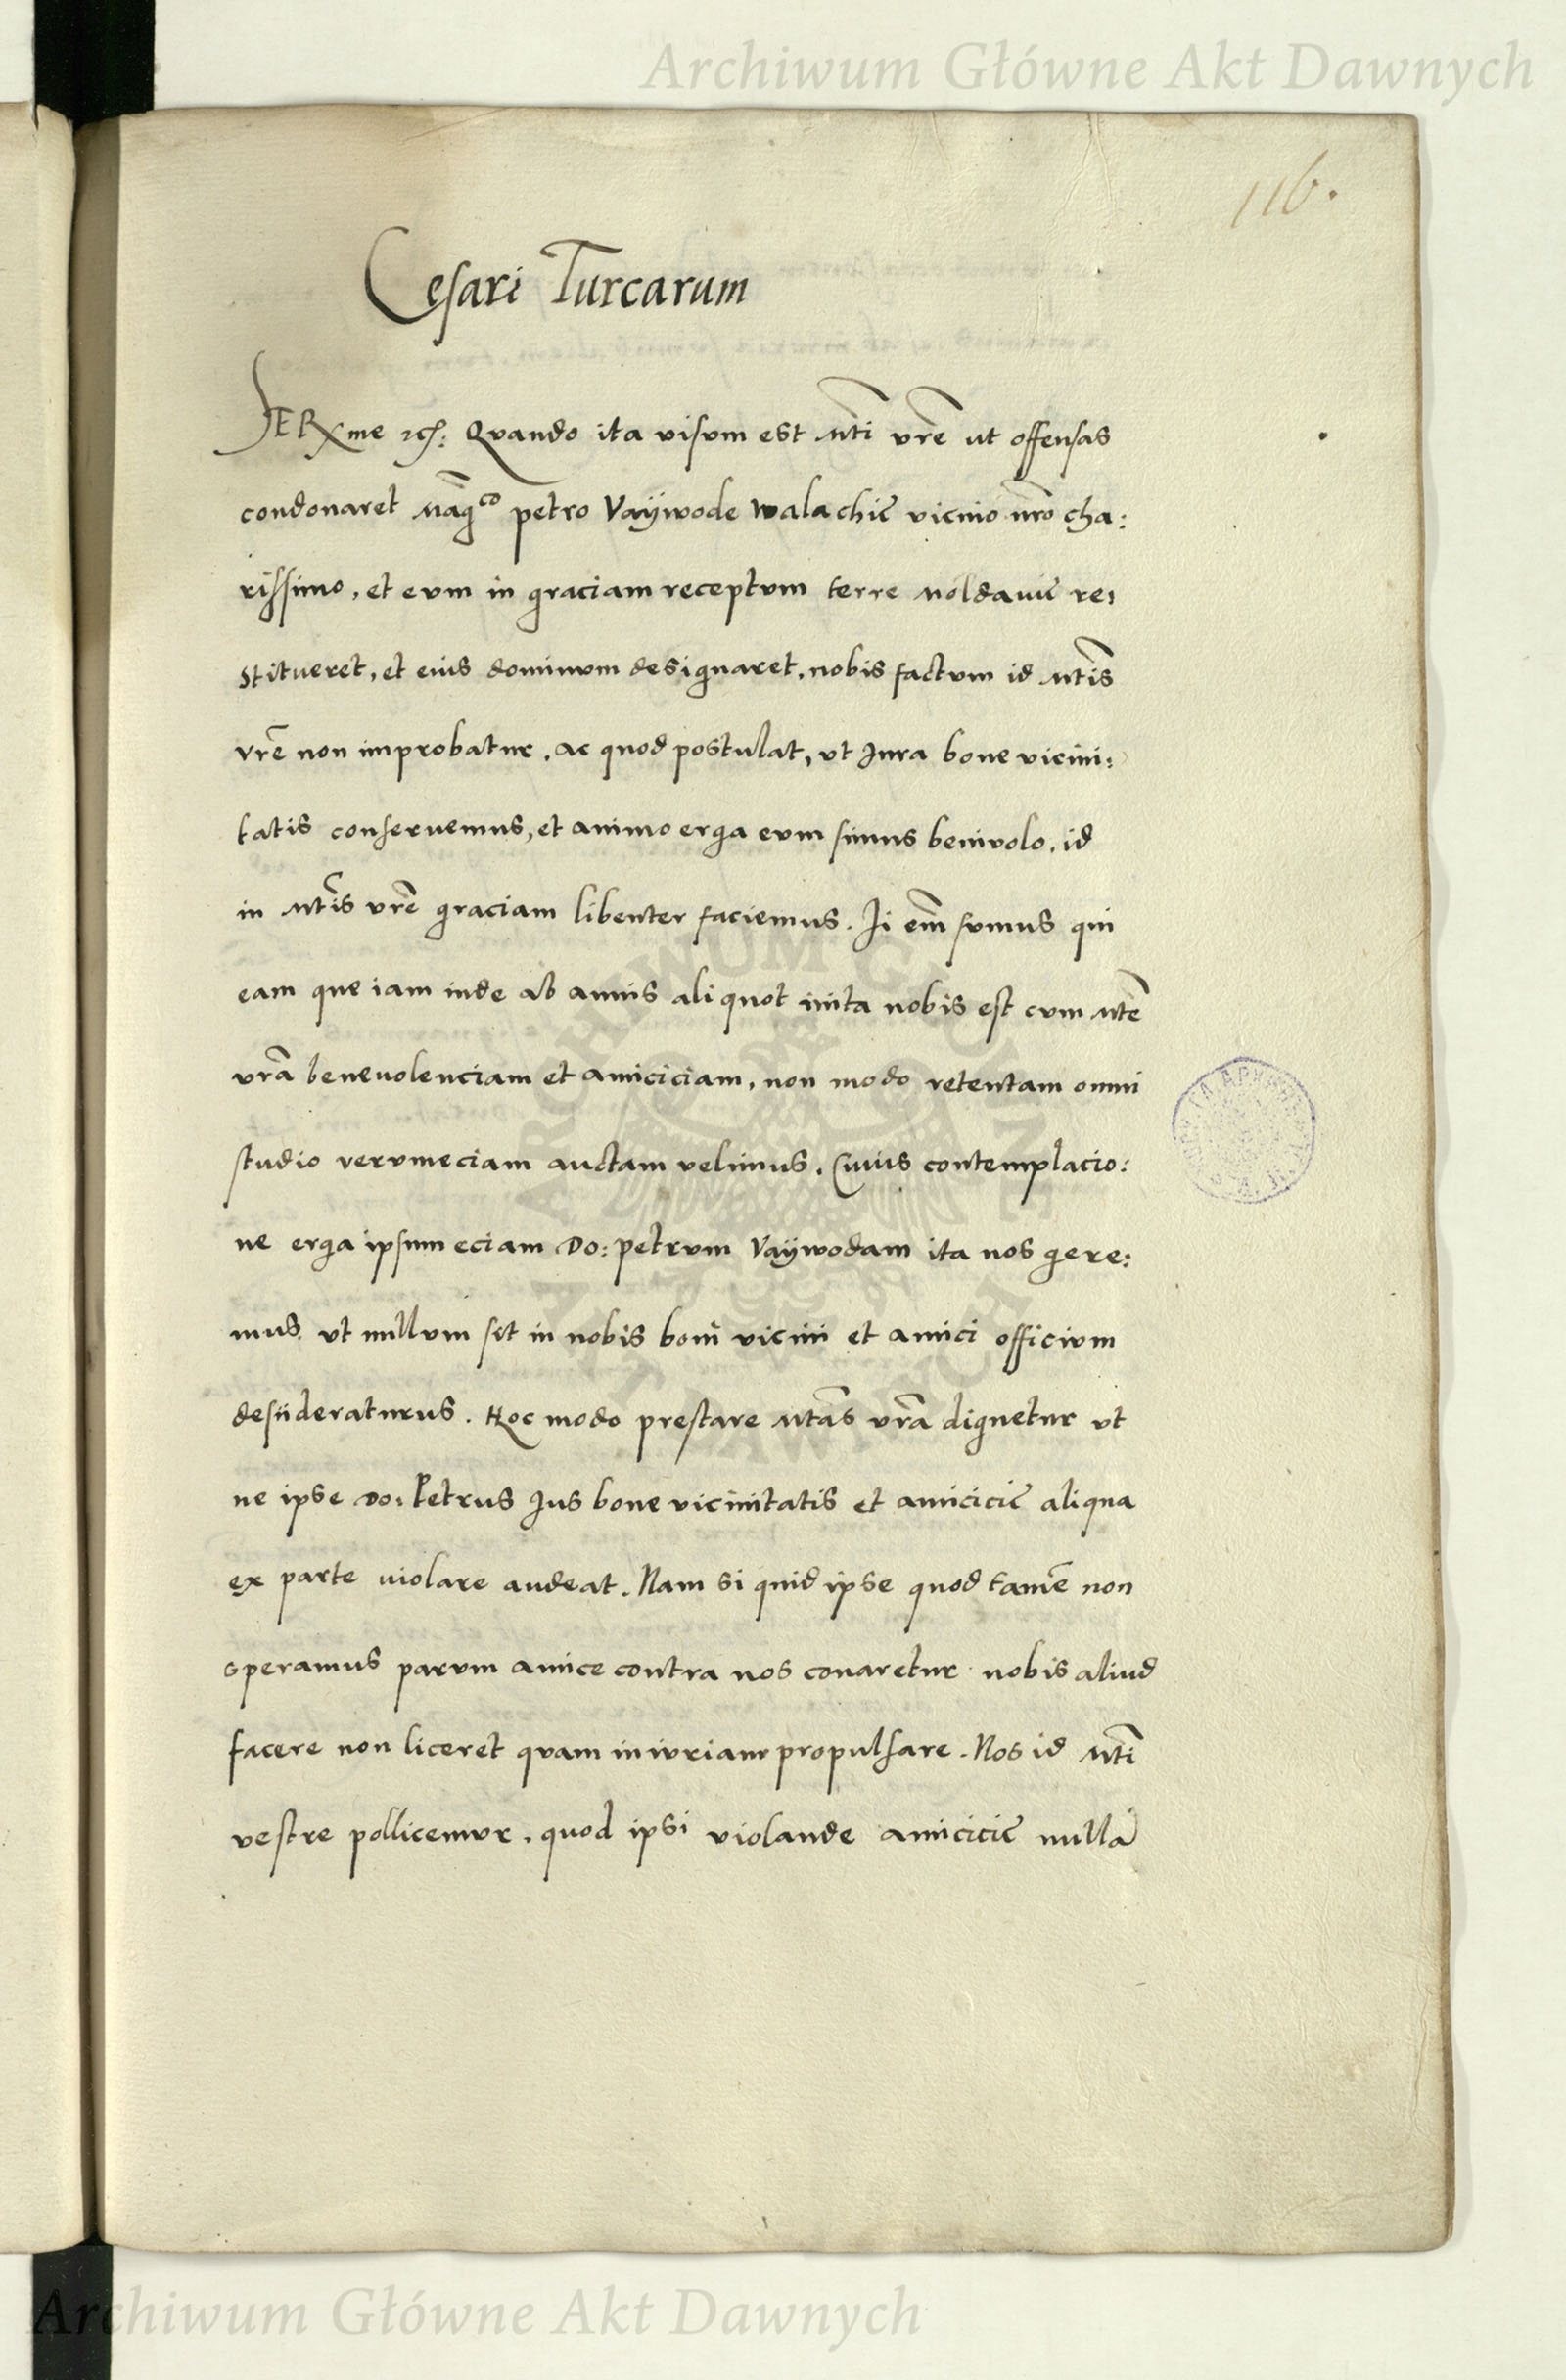 Archiwum Główne Akt Dawnych
116.
Cesari Turcarum
SERxme etc: Quando ita visum est Mti vre ut offensas
condonaret Magco petro Vaÿwode Walachie vicino nro cha:
rissimo, et eum in graciam receptum terre Moldavie re:
stitueret, et eius dominum designaret, nobis factum id Mtis
vre non improbatur. Ac quod postulat, vt Jura bone vicini:
tatis conservemus, et animo erga eum simus benivolo, id
in Mtis vre graciam libenter faciemus. Ji em sumus qui
eam que iam inde ab annis aliquot inita nobis est cum Mte
vra benevolenciam et amiciciam, non modo retentam omni
studio verumeciam auctam velimus. Cuius contemplacio:
ne erga ipsum eciam Do: petrum Vaÿwodam ita nos gere:
mus, vt nullum sit in nobis boni vicini et amici officium
desideraturus. Hoc modo prestare Mtas vra dignetur vt
ne ipse Do: Petrus Jus bone vicinitatis et amicicie aliqua
ex parte violare audeat. Nam si quid ipse quod tame non
speramus parum amice contra nos conaretur nobis aliud
facere non liceret quam iniuriam propulsare. Nos id Mti
vestre pollicemur, quod ipsi violande amicicie nulla
ARCHIWUM GŁÓWNE AKT DAWNYCH
Archiwum Główne Akt Dawnych